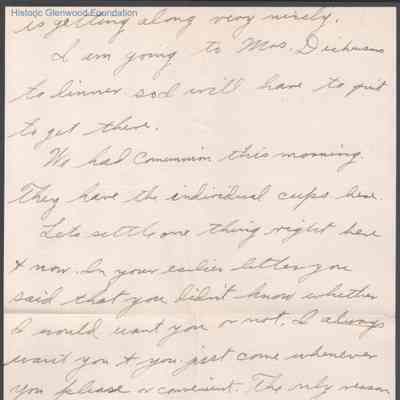 Historic Glenwood Foundation
is getting along very nicely.
I am going to Mrs. Dickinsons
to dinner so I will have to quit
to get there.
We had Communion this morning.
They have the individual cups here.
Lets settle one thing right here
& now. In your earlier letter you
said that you didn't know whether
I would want you or not. I always
want you & you just come whenever
you please or convenient. The only reason